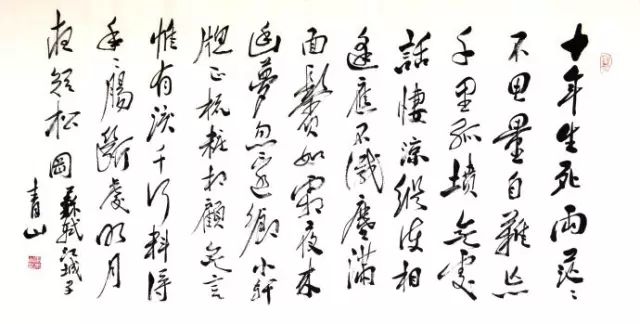 十年生死兩茫〻
不思量自難忘
千里孤墳無處
話悽涼縱使相
逢應不識塵滿
面鬢如霜夜來
幽夢忽還鄉小軒
牕正梳粧相顧無言
惟有淚千行料得
年〻腸斷處明月
夜短松岡
蘇軾江城子
青山